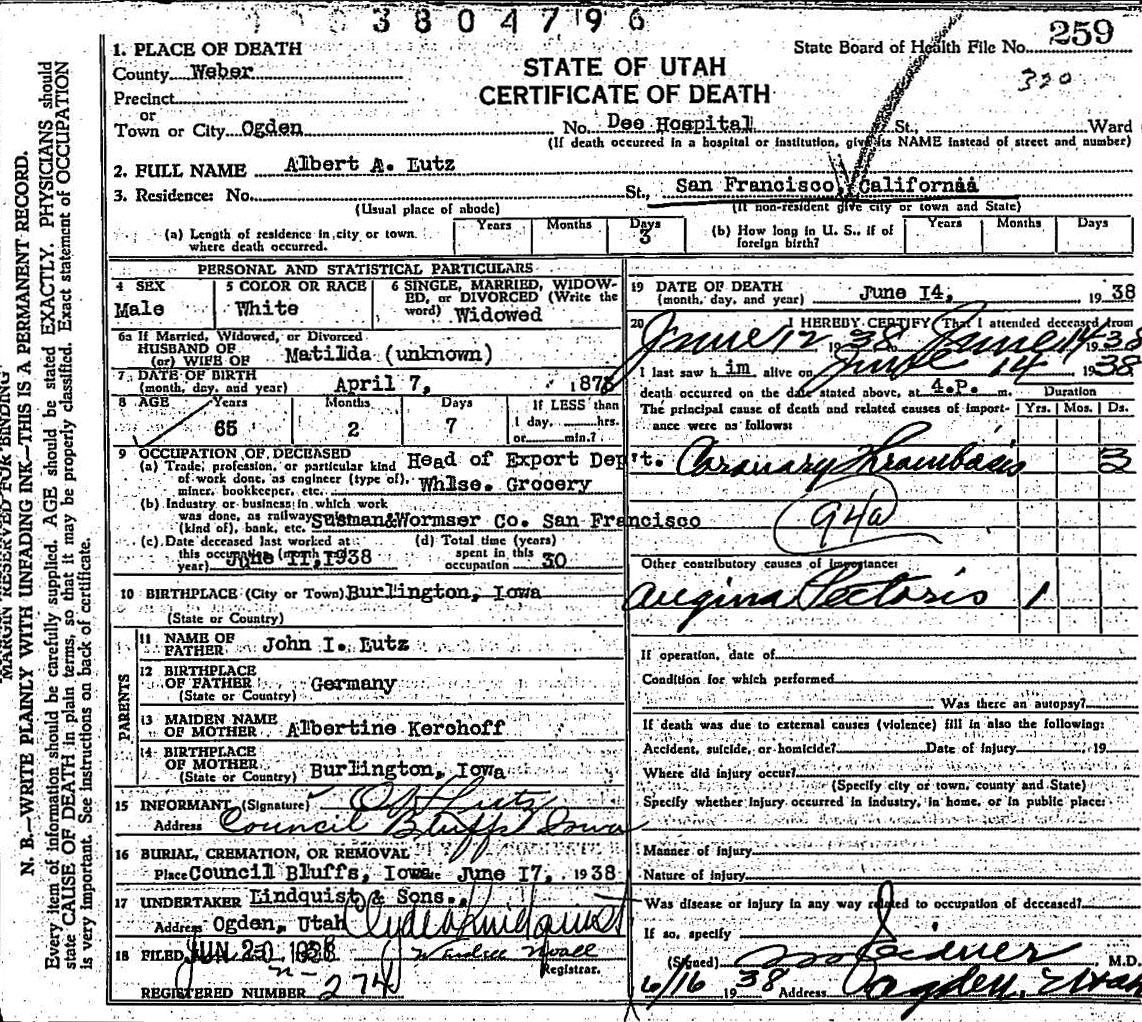 3804796
1. PLACE OF DEATH
State Board of Health File No. 259
County Weber
STATE OF UTAH
320
Precinct
CERTIFICATE OF DEATH
or
Town or City Ogden No. Dee Hospital St., Ward
(If death occurred in a hospital or institution, give its NAME instead of street and number)
2. FULL NAME Albert A. Eutz
3. Residence: No. St., San Francisco, California
(Usual place of abode) (If non-resident give city or town and State)
(a) Length of residence in city or town where death occurred. Years Months Days 3 (b) How long in U. S., if of foreign birth? Years Months Days
MARGIN RESERVED FOR BINDING
N. B.—WRITE PLAINLY WITH UNFADING INK—THIS IS A PERMANENT RECORD.
Every item of information should be carefully supplied. AGE should be stated EXACTLY. PHYSICIANS should
state CAUSE OF DEATH in plain terms, so that it may be properly classified. Exact statement of OCCUPATION
is very important. See instructions on back of certificate.
PERSONAL AND STATISTICAL PARTICULARS
4 SEX 5 COLOR OR RACE 6 SINGLE, MARRIED, WIDOW-
ED, or DIVORCED (Write the
word) Widowed
Male White
6a If Married, Widowed, or Divorced
HUSBAND OF
(or) WIFE OF Matilda (unknown)
7 DATE OF BIRTH
(month, day, and year) April 7, 187
8 AGE Years Months Days If LESS than
1 day, hrs.
65 2 7
or min.?
9 OCCUPATION OF DECEASED
(a) Trade, profession, or particular kind Head of Export Dep't.
of work done, as engineer (type of),
miner, bookkeeper, etc. Whlse. Grocery
(b) Industry or business in which work
was done, as railway
(kind of), bank, etc. Sussman&Wormser Co. San Francisco
(c) Date deceased last worked at
this occupation (month
year) June II,1938
(d) Total time (years)
spent in this
occupation 30
10 BIRTHPLACE (City or Town) Burlington, Iowa
(State or Country)
PARENTS
11 NAME OF
FATHER John I. Eutz
12 BIRTHPLACE
OF FATHER Germany
(State or Country)
13 MAIDEN NAME
OF MOTHER Albertine Kerchoff
14 BIRTHPLACE
OF MOTHER
(State or Country) Burlington, Iowa
15 INFORMANT (Signature)
Address Council Bluffs Iowa
16 BURIAL, CREMATION, OR REMOVAL
Place Council Bluffs, Iowa June 17, 1938
17 UNDERTAKER Lindquist & Sons.
Address Ogden, Utah Clyde Lindquist
18 FILED JUN 20 1938
Registrar.
REGISTERED NUMBER 274
19 DATE OF DEATH
(month, day, and year) June I4, 1938
20 I HEREBY CERTIFY That I attended deceased from
June 12 1938 June 14 1938
I last saw him alive on June 14 1938
death occurred on the date stated above, at 4.P. m. Duration
The principal cause of death and related causes of import- Yrs. Mos. Ds.
ance were as follows:
Coronary Thrombosis 3
94a
Other contributory causes of importance:
Angina Pectoris 1
If operation, date of
Condition for which performed
Was there an autopsy?
If death was due to external causes (violence) fill in also the following:
Accident, suicide, or homicide? Date of injury , 19
Where did injury occur?
(Specify city or town, county and State)
Specify whether injury occurred in industry, in home, or in public place:
Manner of injury
Nature of injury
Was disease or injury in any way related to occupation of deceased?
If so, specify
(Signed) M.D.
6/16 1938 Address Ogden, Utah